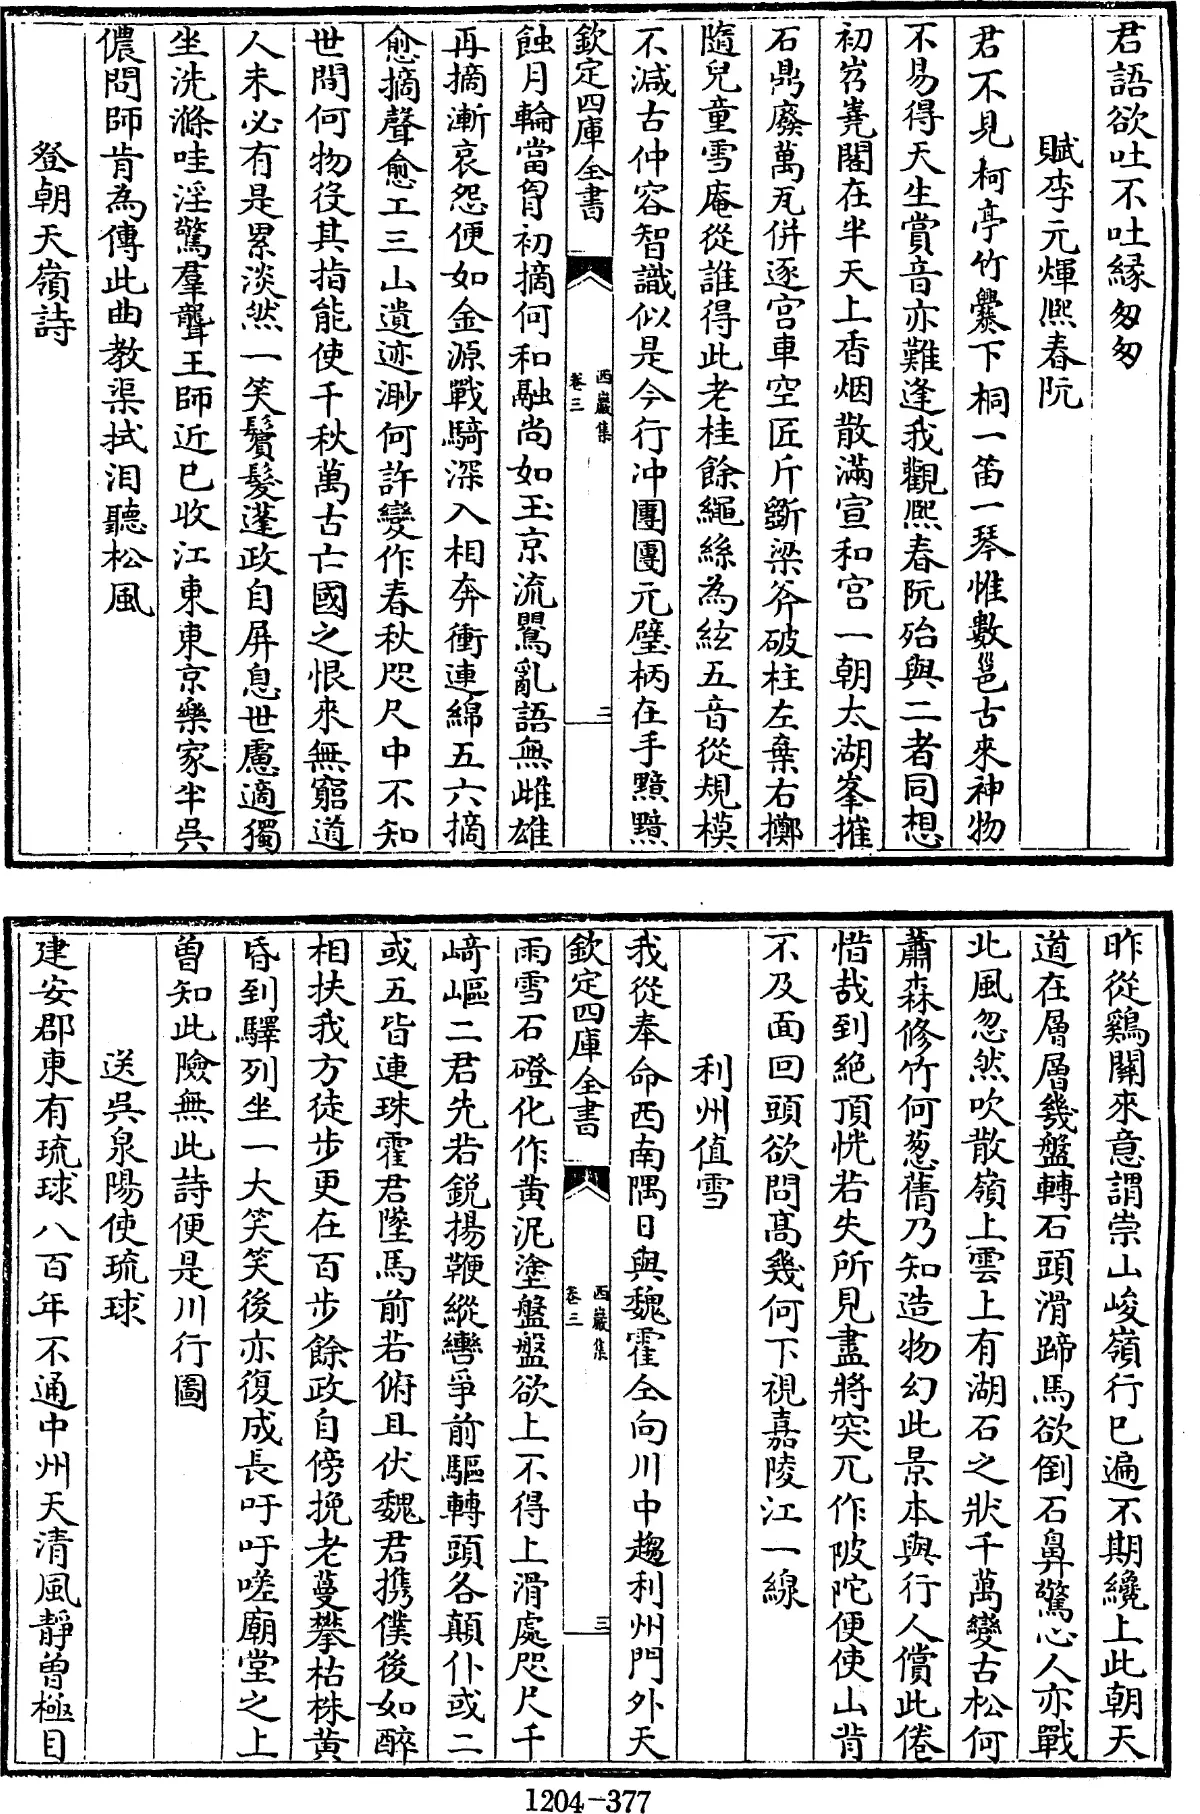 君語欲吐不吐縁匆匆
賦李元煇熈春阮
君不見柯亭竹爨下桐一笛一琴惟數邕古來神物
不易得天生賞音亦難逢我觀熈春阮殆與二者同想
初岧嶤閣在半天上香烟散滿宣和宮一朝太湖峯摧
石鼎廢萬瓦併逐宫車空匠斤斵梁斧破柱左棄右擲
隨兒童雪庵從誰得此老桂餘繩絲為絃五音從規模
不減古仲容智識似是今行冲團團元璧柄在手黯黯
欽定四庫全書
西巖集
卷三
二
蝕月輪當胷初摘何和融尚如玉京流鶯亂語無雌雄
再摘漸哀怨便如金源戰騎深入相奔衝連綿五六摘
愈摘聲愈工三山遺迹渺何許變作春秋咫尺中不知
世間何物役其指能使千秋萬古亡國之恨來無窮道
人未必有是累淡然一笑鬢髮蓬政自屏息世慮適獨
坐洗滌哇淫驚羣聾王師近已收江東東京樂家半呉
儂問師肯為傳此曲教渠拭泪聽松風
登朝天嶺詩
昨從鷄闗來意謂崇山峻嶺行已遍不期纔上此朝天
道在層層幾盤轉石頭滑蹄馬欲倒石鼻驚心人亦戰
北風忽然吹散嶺上雲上有湖石之狀千萬變古松何
蕭森修竹何葱蒨乃知造物幻此景本與行人償此倦
惜哉到絶頂恍若失所見盡將突兀作陂陀便使山背
不及面回頭欲問高幾何下視嘉陵江一線
利州值雪
我從奉命西南隅日與魏霍仝向川中趨利州門外天
欽定四庫全書
西巖集
卷三
三
雨雪石磴化作黄泥塗盤盤欲上不得上滑處咫尺千
﨑嶇二君先若銳揚鞭縱轡爭前驅轉頭各顛仆或二
或五皆連珠霍君墜馬前若俯且伏魏君携僕後如醉
相扶我方徒步更在百步餘政自傍挽老蔓攀枯株黄
昏到驛列坐一大笑笑後亦復成長吁吁嗟廟堂之上
曽知此險無此詩便是川行圖
送呉泉陽使琉球
建安郡東有琉球八百年不通中州天清風靜曽極目
1204-377